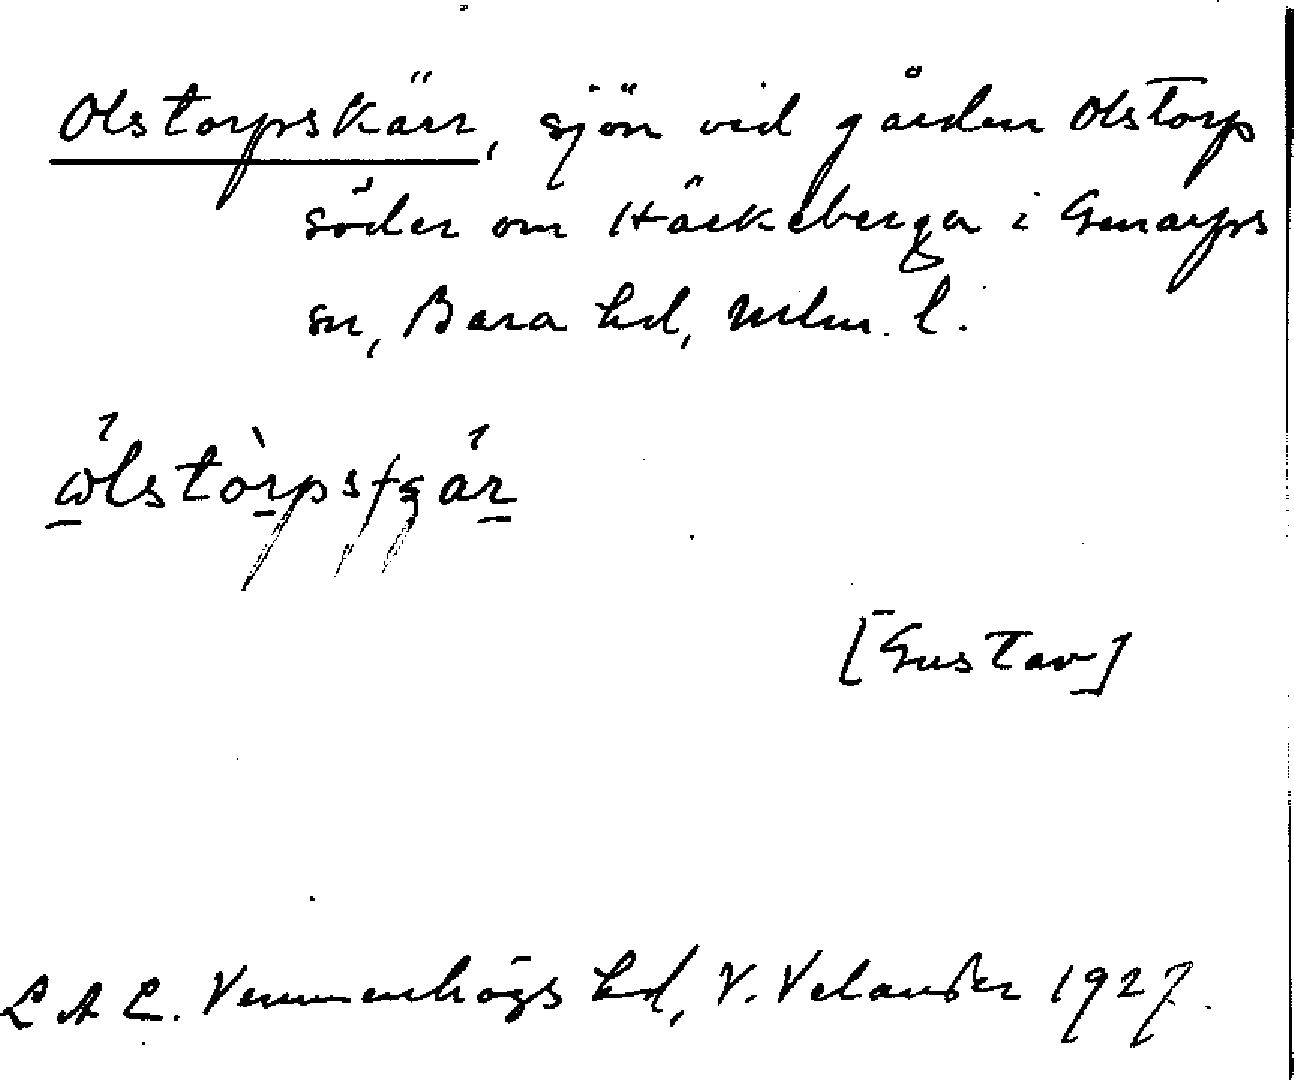 Olstorpskärr, sjön vid gården Olstorp
söder om Häckeberga i Genarps
sn, Bara hd, Mlm. l.
[Gustav]
L A L. Vemmenhögs hd, V. Velander 1927.